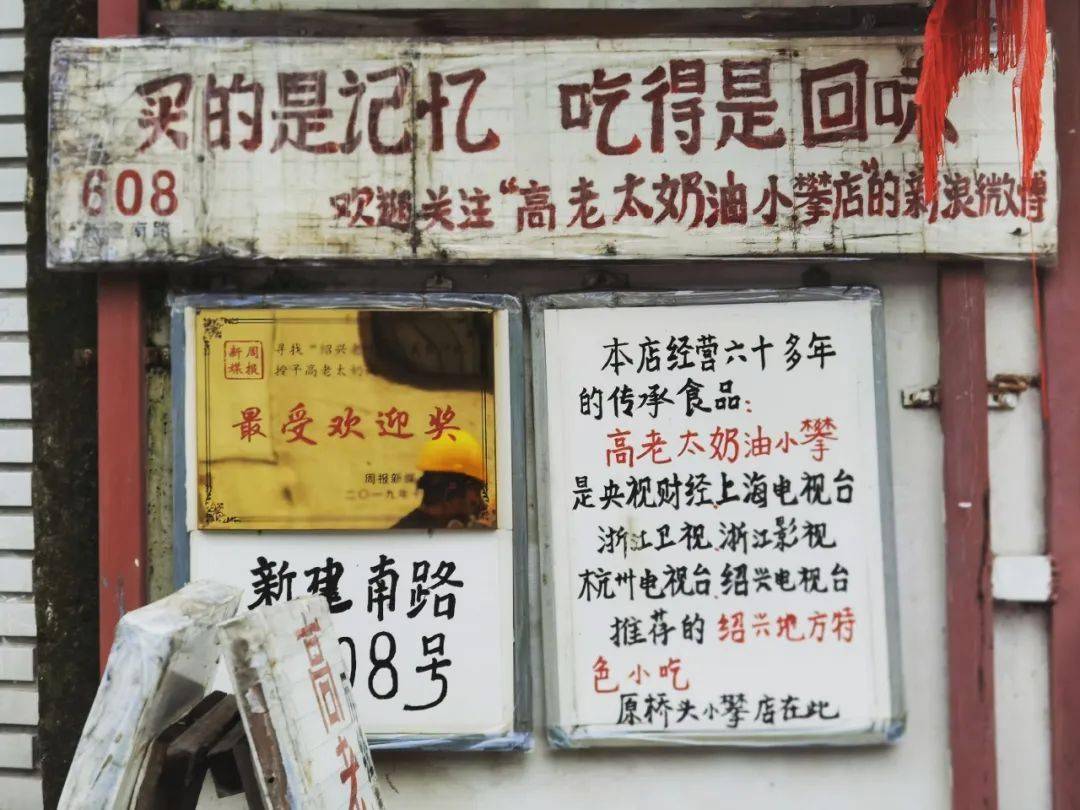 买的是记忆 吃得是回味
608
新建南路
欢迎关注“高老太奶油小攀店”的新浪微博
新周
媒报
寻找“绍兴老
授予高老太奶
最受欢迎奖
周报新媒
二〇一九年十
新建南路
08号
高老
本店经营六十多年
的传承食品:
高老太奶油小攀
是央视财经上海电视台
浙江卫视.浙江影视
杭州电视台.绍兴电视台
推荐的绍兴地方特
色小吃
原桥头小攀店在此